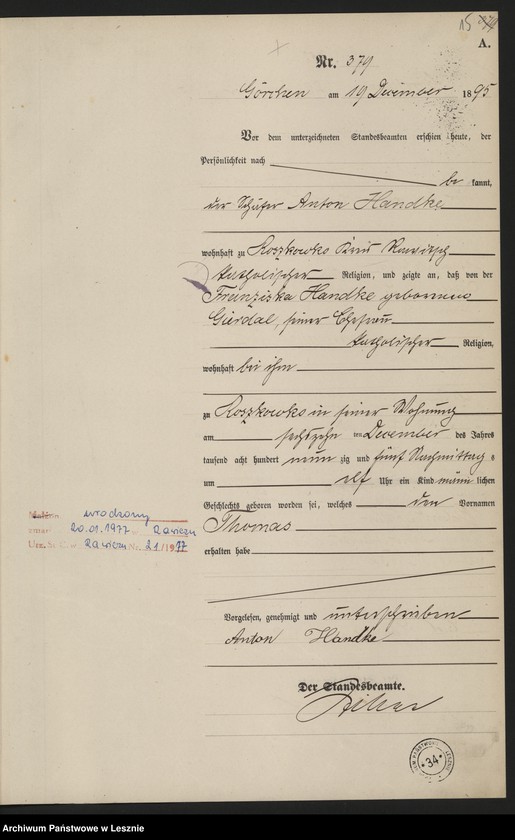 15
A.
Nr. 379
Görchen am 19 December 1895
Vor dem unterzeichneten Standesbeamten erschien heute, der
Persönlichkeit nach
be kannt,
der Schäfer Anton Handke
wohnhaft zu Roszkowko Kreis Rawitsch
katholischer Religion, und zeigte an, daß von der
Franziska Handke geborenen
Gierdal, seiner Ehefrau
katholischer Religion,
wohnhaft bei ihm
zu Roszkowko in seiner Wohnung
am sechszehn ten December des Jahres
tausend acht hundert neun zig und fünf Nachmittag s
um elf Uhr ein Kind männ lichen
Geschlechts geboren worden sei, welches den Vornamen
Thomas
erhalten habe
urodzony
zmarł 20.01.1977 Rawicz
Urz. St. C. w Rawicz Nr. 21/1977
Vorgelesen, genehmigt und unterschrieben
Anton Handke
Der Standesbeamte.
34
Archiwum Państwowe w Lesznie